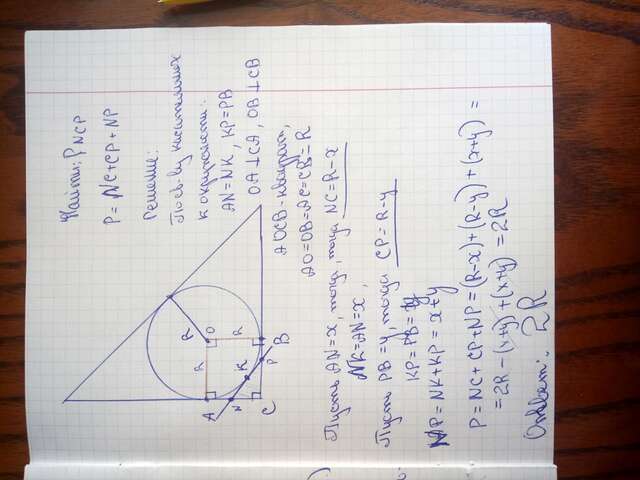 Найти: P NCP
P = NC+CP+NP
Решение:
По св-ву касательных
к окружности:
AN=NK, KP=PB
OA⊥CA, OB⊥CB
AOCB-квадрат,
AO=OB=AC=CB=R
Пусть AN=x, тогда, тогда NC=R-x
NK=AN=x,
Пусть PB=y, тогда CP=R-y
KP=PB=y
NP=NK+KP=x+y
P=NC+CP+NP=(R-x)+(R-y)+(x+y)=
=2R-(x+y)+(x+y)=2R
Ответ: 2R
A
N
C
K
P
B
O
R
R
R